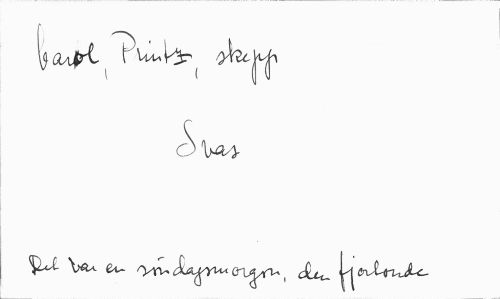 Carol, Printz, skepp
Svas
Det var en söndagsmorgon, den fjortonde